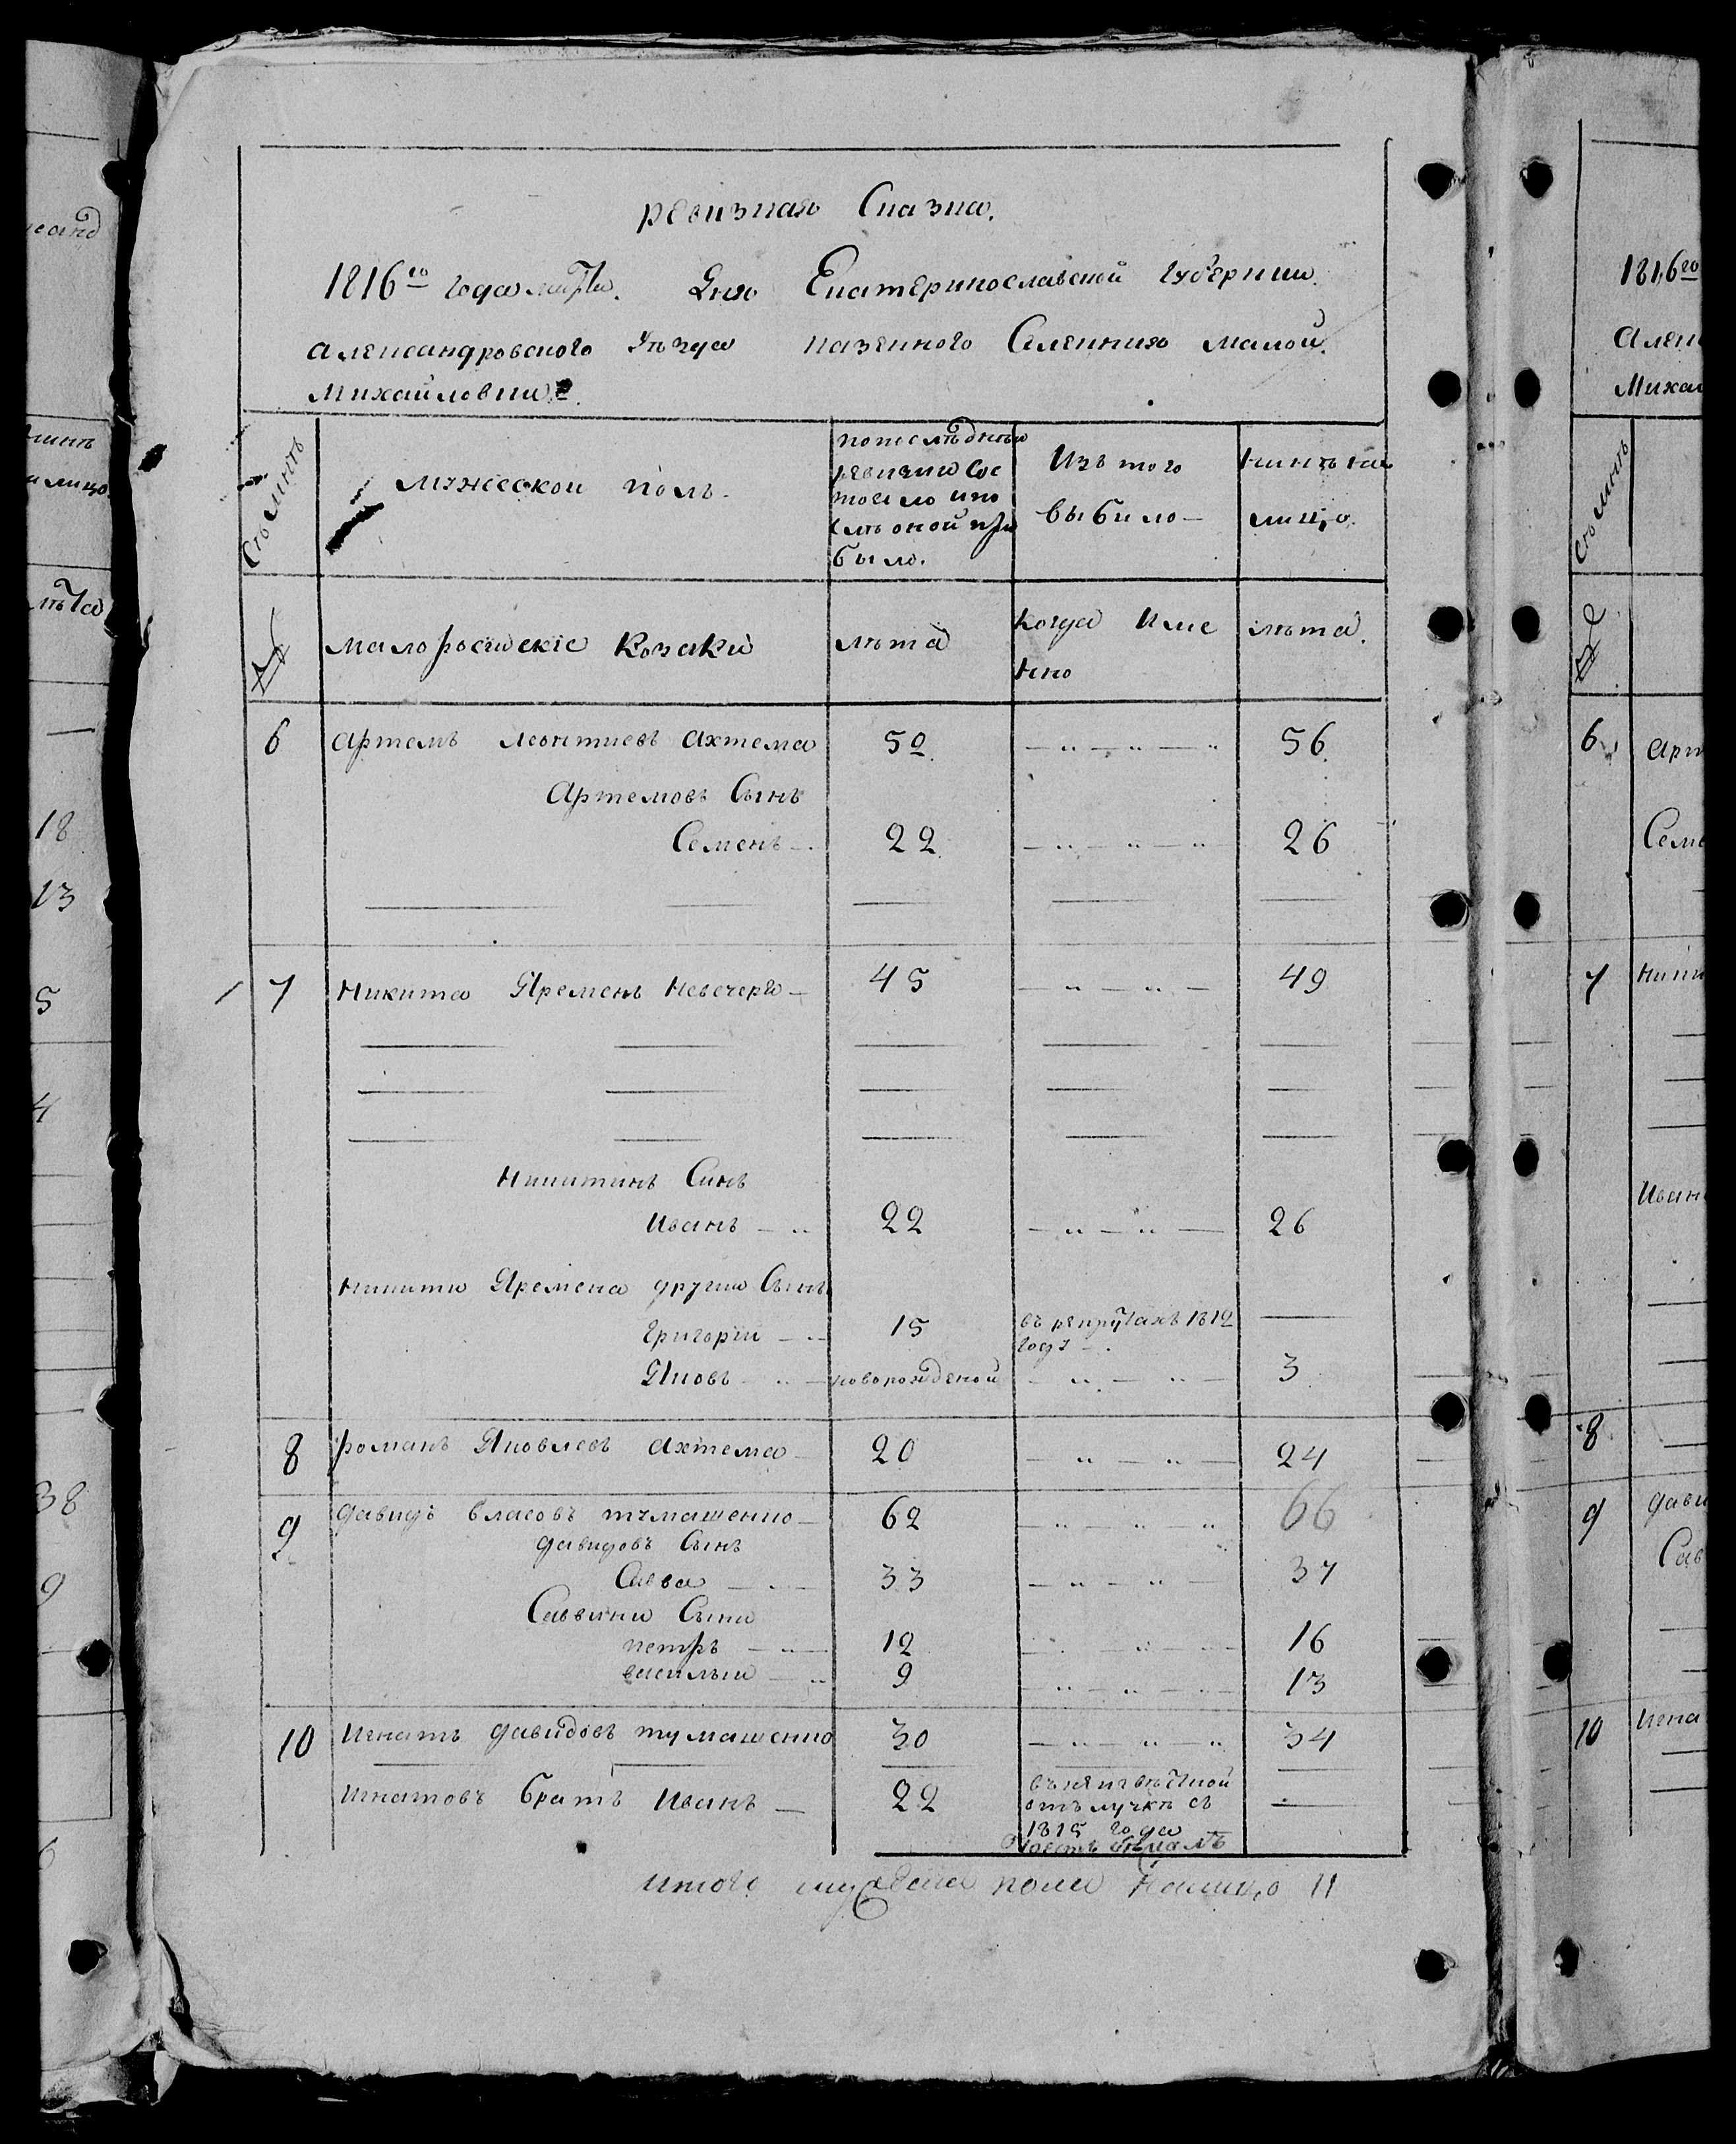 еанд
нинѣ
а лицо
лѣта
18
13
5
4
38
9
6
ревизная Сказка.
1816го года марта. Дня Екатеринославской губернии
александровского Уѣзда казенного Селения малой
михайловки
Семьи
мужеской полъ.
попослѣдней
ревизии сос
тояло ипо
слѣ оной при
было.
Изъ того
выбило
нинѣ на
лицо.
№
малоросийские козаки
лѣта
когда Име
нно
лѣта.
6 Артемъ леонтиевъ Ахтема 50 56
Артемовъ Сынъ
Семенъ 22 26
7 Никита Яременъ Невечеря 45 49
Никитинъ Синъ
Иванъ 22 26
Никити Яремена други Сынъ
Григорий 15 въ рекрутахъ 1812
году
Яковъ новорожденой 3
8 романъ Яковлевъ Ахтема 20 24
9 давидъ власовъ тумашенко 62 66
давидовъ Сынъ
Савва 33 37
Саввини Сыни
петръ 12 16
василий 9 13
10 Игнатъ давидовъ тумашенко 30 34
Игнатовъ братъ Иванъ 22 въ неизвѣстной
отълучкѣ съ
1815 года
итого мужеска пола Налицо 11
1816го
Алек
Михай
Семьи
№
6 Арт
Семе
7 Ники
Иван
8
9 дави
Сав
10 Игна